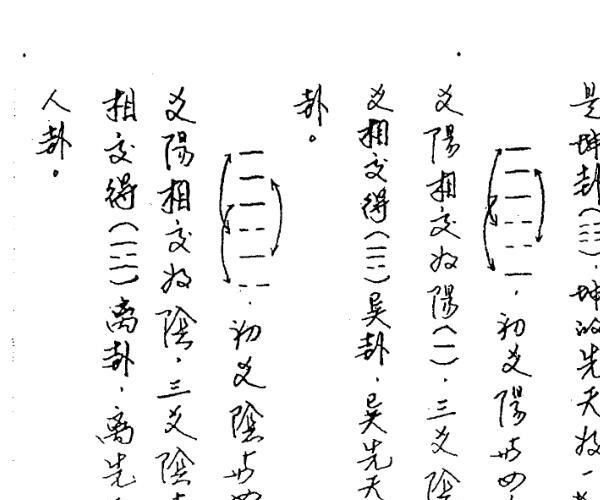 是坤卦(☷)，坤的先天
，初爻陽
爻陽相交為陽(一)，三爻陰
爻相交得(☴)巽卦，巽先天
卦。
，初爻陰
爻陽相交為陰，三爻陰
相交得(☲)离卦，离先
人卦。